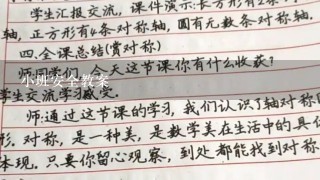 学生汇报交流，课件演示：长方形有2条
轴，正方形有4条对称轴，圆有无数条对称轴.
四.全课总结(赏对称)
师：同学们，今天这节课你有什么收获？
小班安全教案
学生交流学习感受.
师：通过这节课的学习，我们认识了轴对称
形.对称，是一种美，是数学美在生活中的具
体现.只要你留心观察，到处都能找到对称